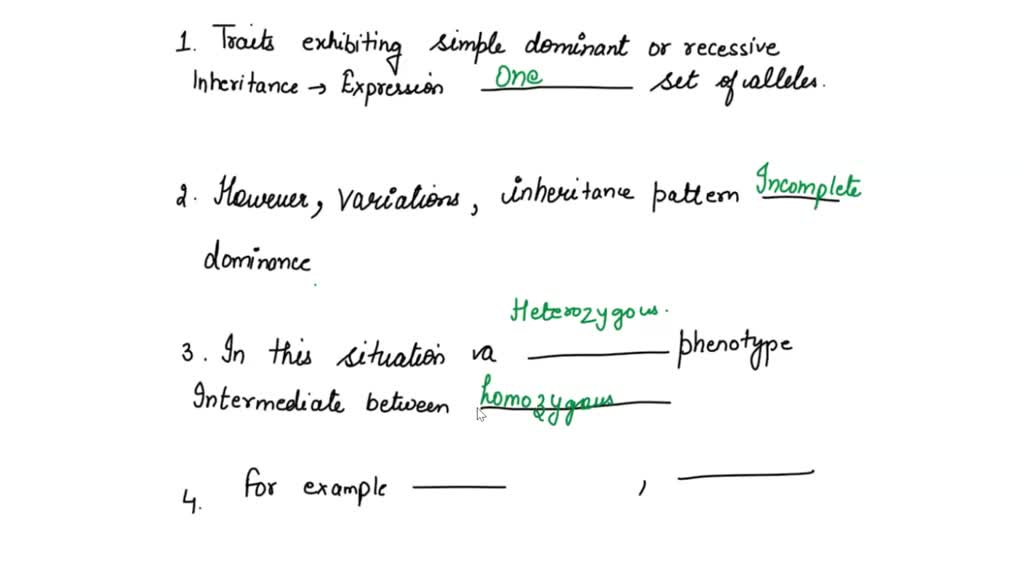 1. Traits exhibiting simple dominant or recessive
Inheritance → Expression One set of alleles.
2. However, variations, inheritance pattern Incomplete
dominance
Heterozygous.
3. In this situation va phenotype
Intermediate between homozygous
4. for example ,